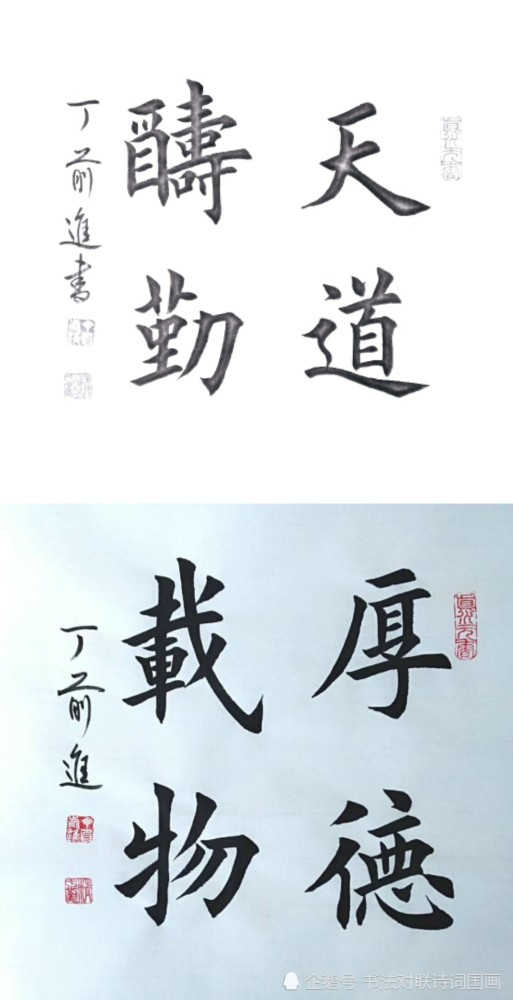 天道
醻勤
丁前進書
厚徳
載物
丁前進
企鹅号 书法对联诗词国画